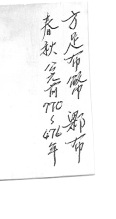 方足布幣 鄩布
春秋 公元前770~476年